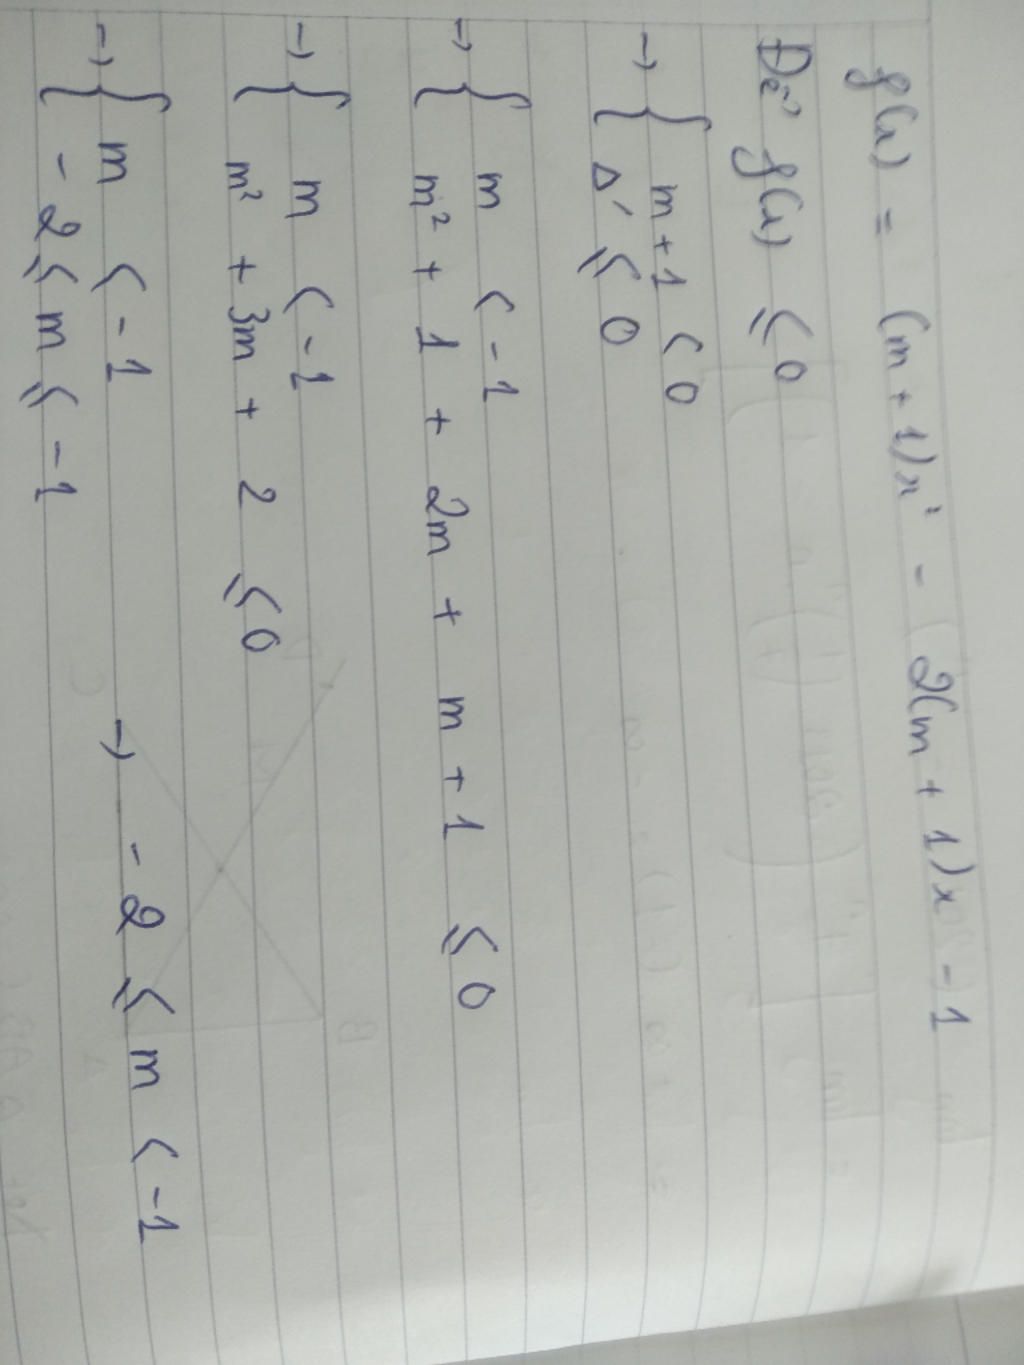 f(x) = (m + 1)x² - 2(m + 1)x - 1
Để f(x) ≤ 0
→ { m + 1 < 0
Δ' ≤ 0
→ { m < -1
m² + 1 + 2m + m + 1 ≤ 0
→ { m < -1
m² + 3m + 2 ≤ 0
→ { m < -1 → -2 ≤ m < -1
-2 ≤ m ≤ -1